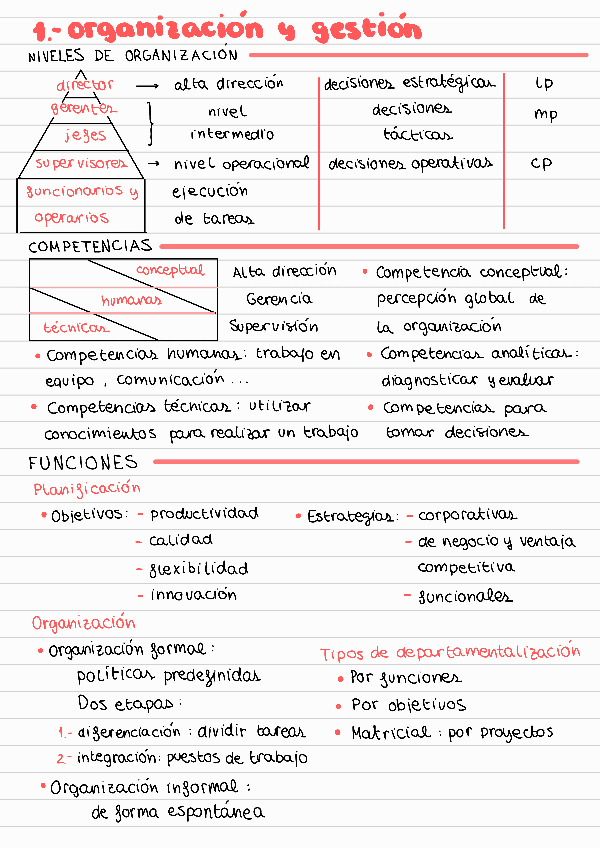 1.- organización y gestión
NIVELES DE ORGANIZACIÓN
director → alta dirección decisiones estratégicas lp
gerentes nivel decisiones mp
jefes intermedio tácticas
supervisores → nivel operacional decisiones operativas cp
funcionarios y ejecución
operarios de tareas
COMPETENCIAS
conceptual Alta dirección • Competencia conceptual:
humanas Gerencia percepción global de
técnicas Supervisión la organización
• Competencias humanas: trabajo en • Competencias analíticas:
equipo, comunicación... diagnosticar y evaluar
• Competencias técnicas: utilizar • Competencias para
conocimientos para realizar un trabajo tomar decisiones
FUNCIONES
Planificación
• Objetivos: - productividad • Estrategias: - corporativas
- calidad - de negocio y ventaja
- flexibilidad competitiva
- innovación - funcionales
Organización
• Organización formal: Tipos de departamentalización
políticas predefinidas • Por funciones
Dos etapas: • Por objetivos
1.- diferenciación: dividir tareas • Matricial: por proyectos
2- integración: puestos de trabajo
• Organización informal:
de forma espontánea